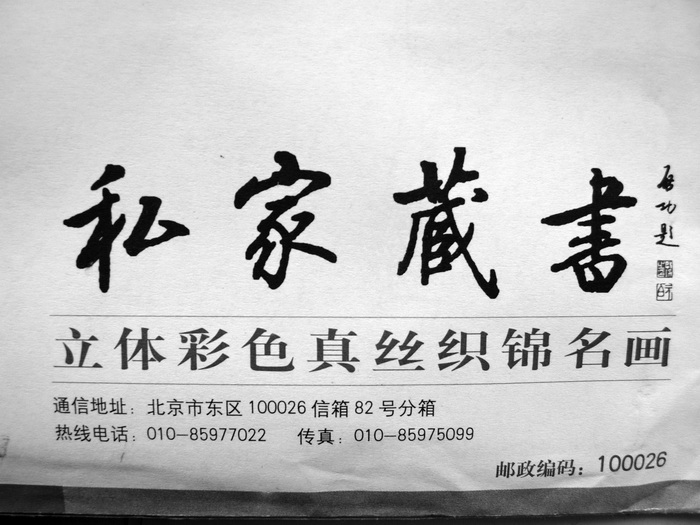 私家藏书
启功题
立体彩色真丝织锦名画
通信地址：北京市东区100026信箱82号分箱
热线电话：010-85977022 传真：010-85975099
邮政编码：100026